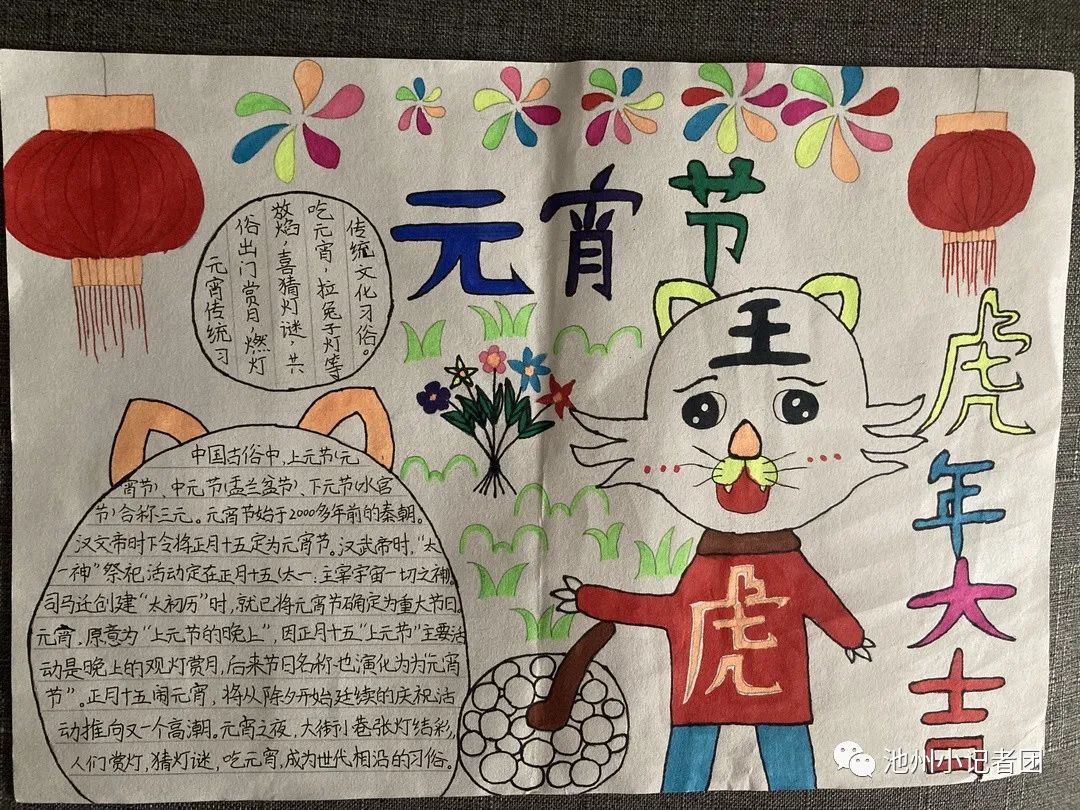 元宵节
虎年大吉
元宵传统习
俗出门赏月，燃灯
放焰，喜猜灯谜，共
吃元宵，拉兔子灯等
传统文化习俗。
王
虎
中国古俗中，上元节（元
宵节）、中元节（盂兰盆节）、下元节（水宫
节）合称三元。元宵节始于2000多年前的秦朝。
汉文帝时下令将正月十五定为元宵节。汉武帝时，“太
一神”祭祀活动定在正月十五（太一：主宰宇宙一切之神）。
司马迁创建“太初历”时，就已将元宵节确定为重大节日。
元宵，原意为“上元节的晚上”，因正月十五“上元节”主要活
动是晚上的观灯赏月，后来节日名称也演化为为“元宵
节”。正月十五闹元宵，将从除夕开始延续的庆祝活
动推向又一个高潮。元宵之夜，大街小巷张灯结彩，
人们赏灯，猜灯谜，吃元宵，成为世代相沿的习俗。
池州小记者团